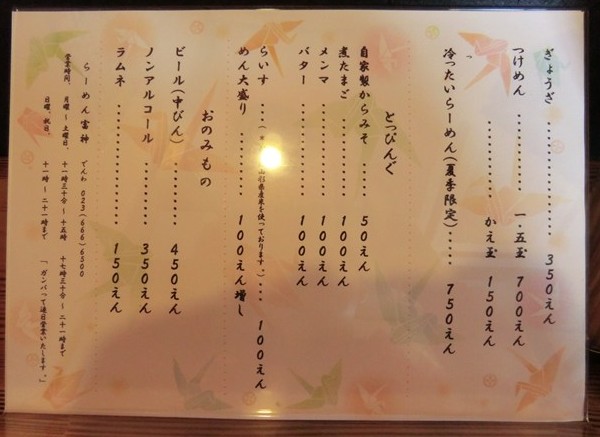 ぎょうざ ........................ 350えん
つけめん ........................ 一.五玉 700えん
かえ玉 150えん
冷ったいらーめん(夏季限定)..... 750えん
とっぴんぐ
自家製からみそ ... 50えん
煮たまご ............ 100えん
メンマ ............... 100えん
バター ............... 100えん
らいす ....( 山形県産米を使っております。).... 100えん
めん大盛り ............ 100えん増し
おのみもの
ビール(中びん) ......... 450えん
ノンアルコール ......... 350えん
ラムネ .................. 150えん
らーめん富神 でんわ 023(666)6500
営業時間、 月曜〜土曜日、 十一時三十分〜十五時 十七時三十分〜二十一時まで
日曜、祝日、 十一時〜二十一時まで 「ガンバって連日営業いたします。」